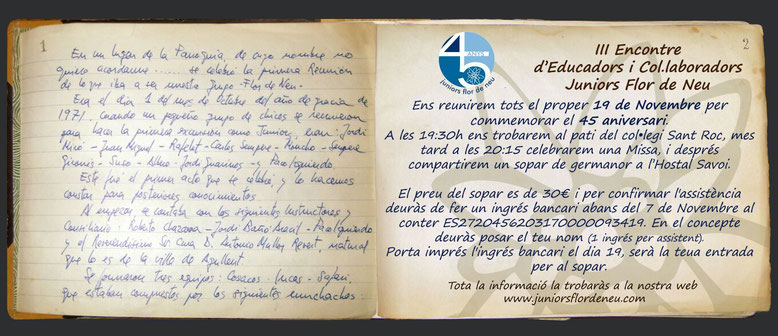 1
En un lugar de la Parroquia, de cuyo nombre no
quiero acordarme ....... se celebró la primera Reunion
de lo que iba a ser nuestro Grupo - Flor de Neu.
Era el dia 1 del mes de Octubre del año de gracia de
1971, cuando un pequeño grupo de chicos se reunieron
para hacer la primera excursion como Juniors, eran: Jordi
Miró - Juan Miguel - Rafelet - Carlos Sempere - Moncho - Sempere
Gisbert - Jordi Juaninos - y Paco Izquierdo.
Este fué el primer acto que se celebró, y lo hacemos
constar para posteriores conocimientos.
Al empezar, se contaba con los siguientes Instructores y
Consiliario: Roberto - Jordi - Paco Izquierdo
y el Reverendisimo Sr. Cura D. Antonio Mullor Revert, natural
que lo es de la villa de Agullent.
Se formaron tres equipos: Cosacos - Incas - Safari.
que estaban compuestos por los siguientes muchachos:
2
45
ANYS
juniors flor de neu
III Encontre
d'Educadors i Col.laboradors
Juniors Flor de Neu
Ens reunirem tots el proper 19 de Novembre per
commemorar el 45 aniversari.
A les 19:30h ens trobarem al pati del col•legi Sant Roc, mes
tard a les 20:15 celebrarem una Missa, i després
compartirem un sopar de germanor a l'Hostal Savoi.
El preu del sopar es de 30€ i per confirmar l'assistència
deuràs de fer un ingrés bancari abans del 7 de Novembre al
conter ES2720456203170000093419. En el concepte
deuràs posar el teu nom (1 ingrés per assistent).
Porta imprés l'ingrés bancari el dia 19, serà la teua entrada
per al sopar.
Tota la informació la trobaràs a la nostra web
www.juniorsflordeneu.com